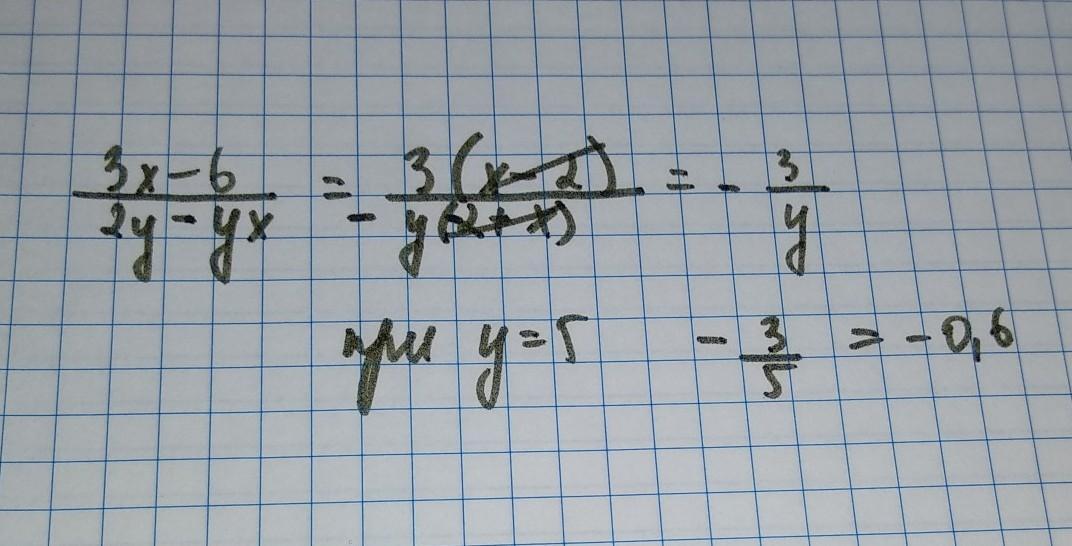 3x-6/2y-yx = 3(x-2)/-y(-2+x) = -3/y
при y=5 -3/5 = -0,6